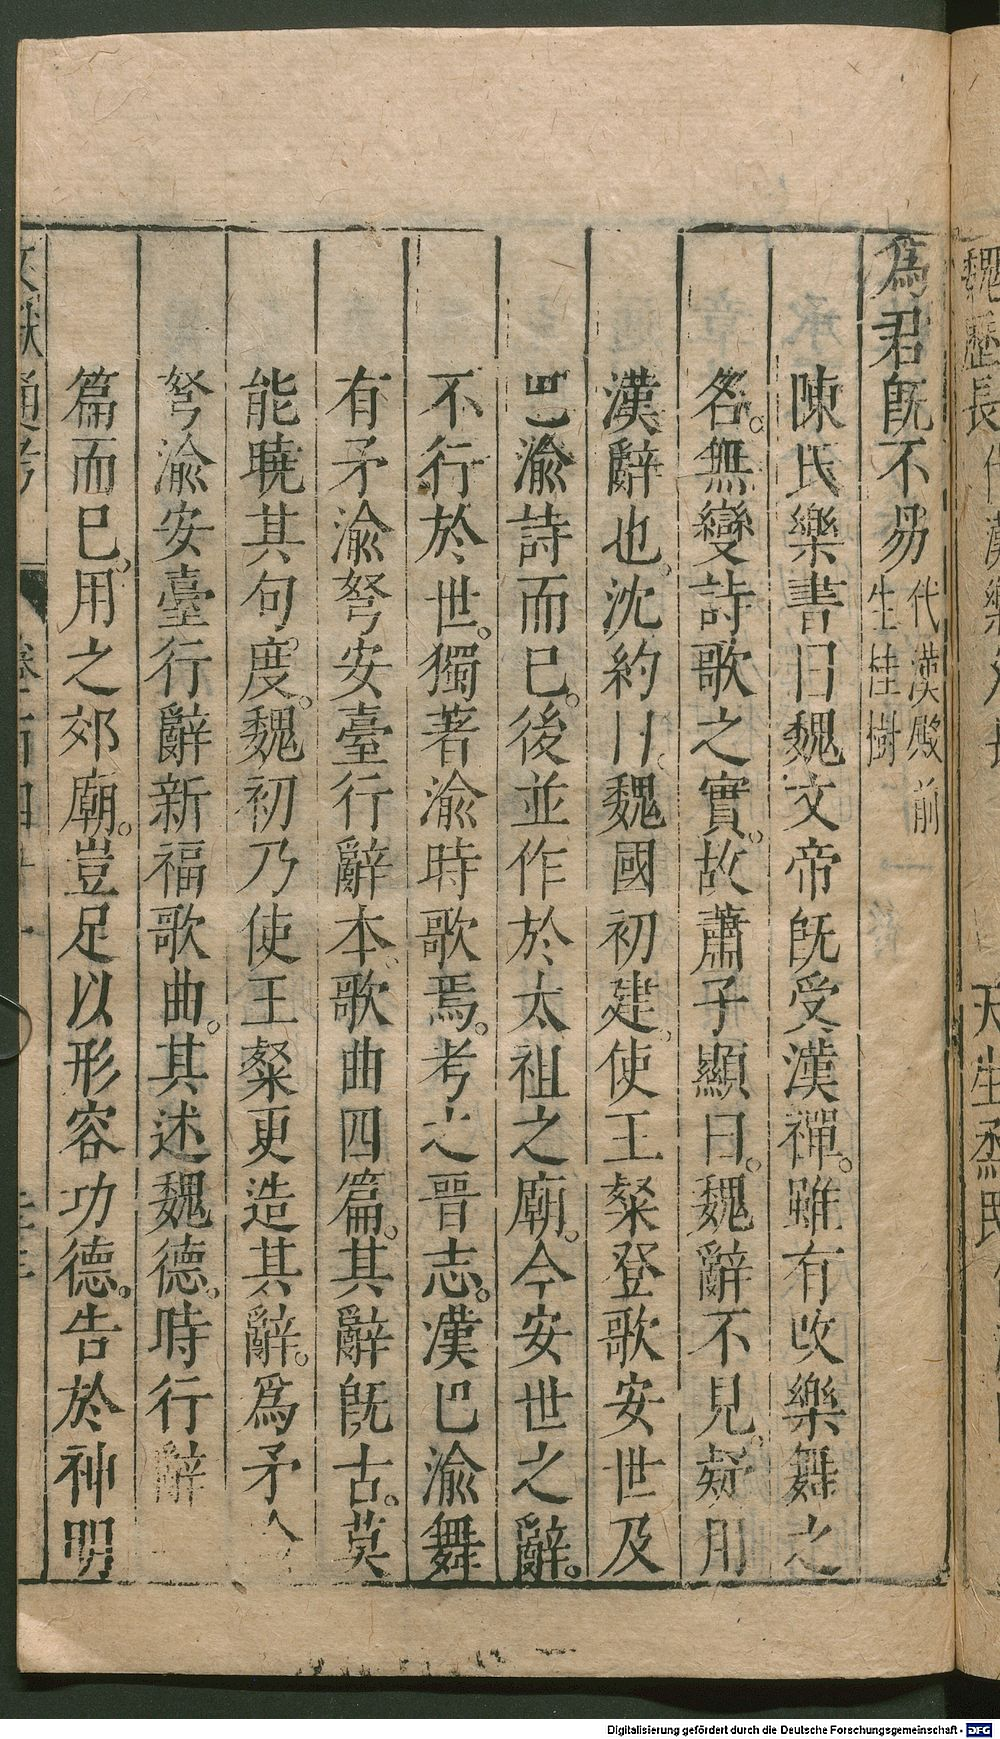 爲君旣不易代漢殿前生桂樹
陳氏樂書曰魏文帝旣受漢禪。雖有改樂舞之
名。無變詩歌之實。故蕭子顯曰。魏辭不見。疑用
漢辭也。沈約曰。魏國初建。使王粲登歌安世及
巴渝詩而已。後並作於太祖之廟。今安世之辭。
不行於世。獨著渝時歌焉。考之晉志。漢巴渝舞
有矛渝弩安臺行辭本歌曲四篇。其辭旣古。莫
能曉其句度。魏初乃使王粲更造其辭。爲矛
弩渝安臺行辭新福歌曲。其述魏德。時行辭
篇而已。用之郊廟。豈足以形容功德。告於神明
文獻通考
Digitalisierung gefördert durch die Deutsche Forschungsgemeinschaft - DFG